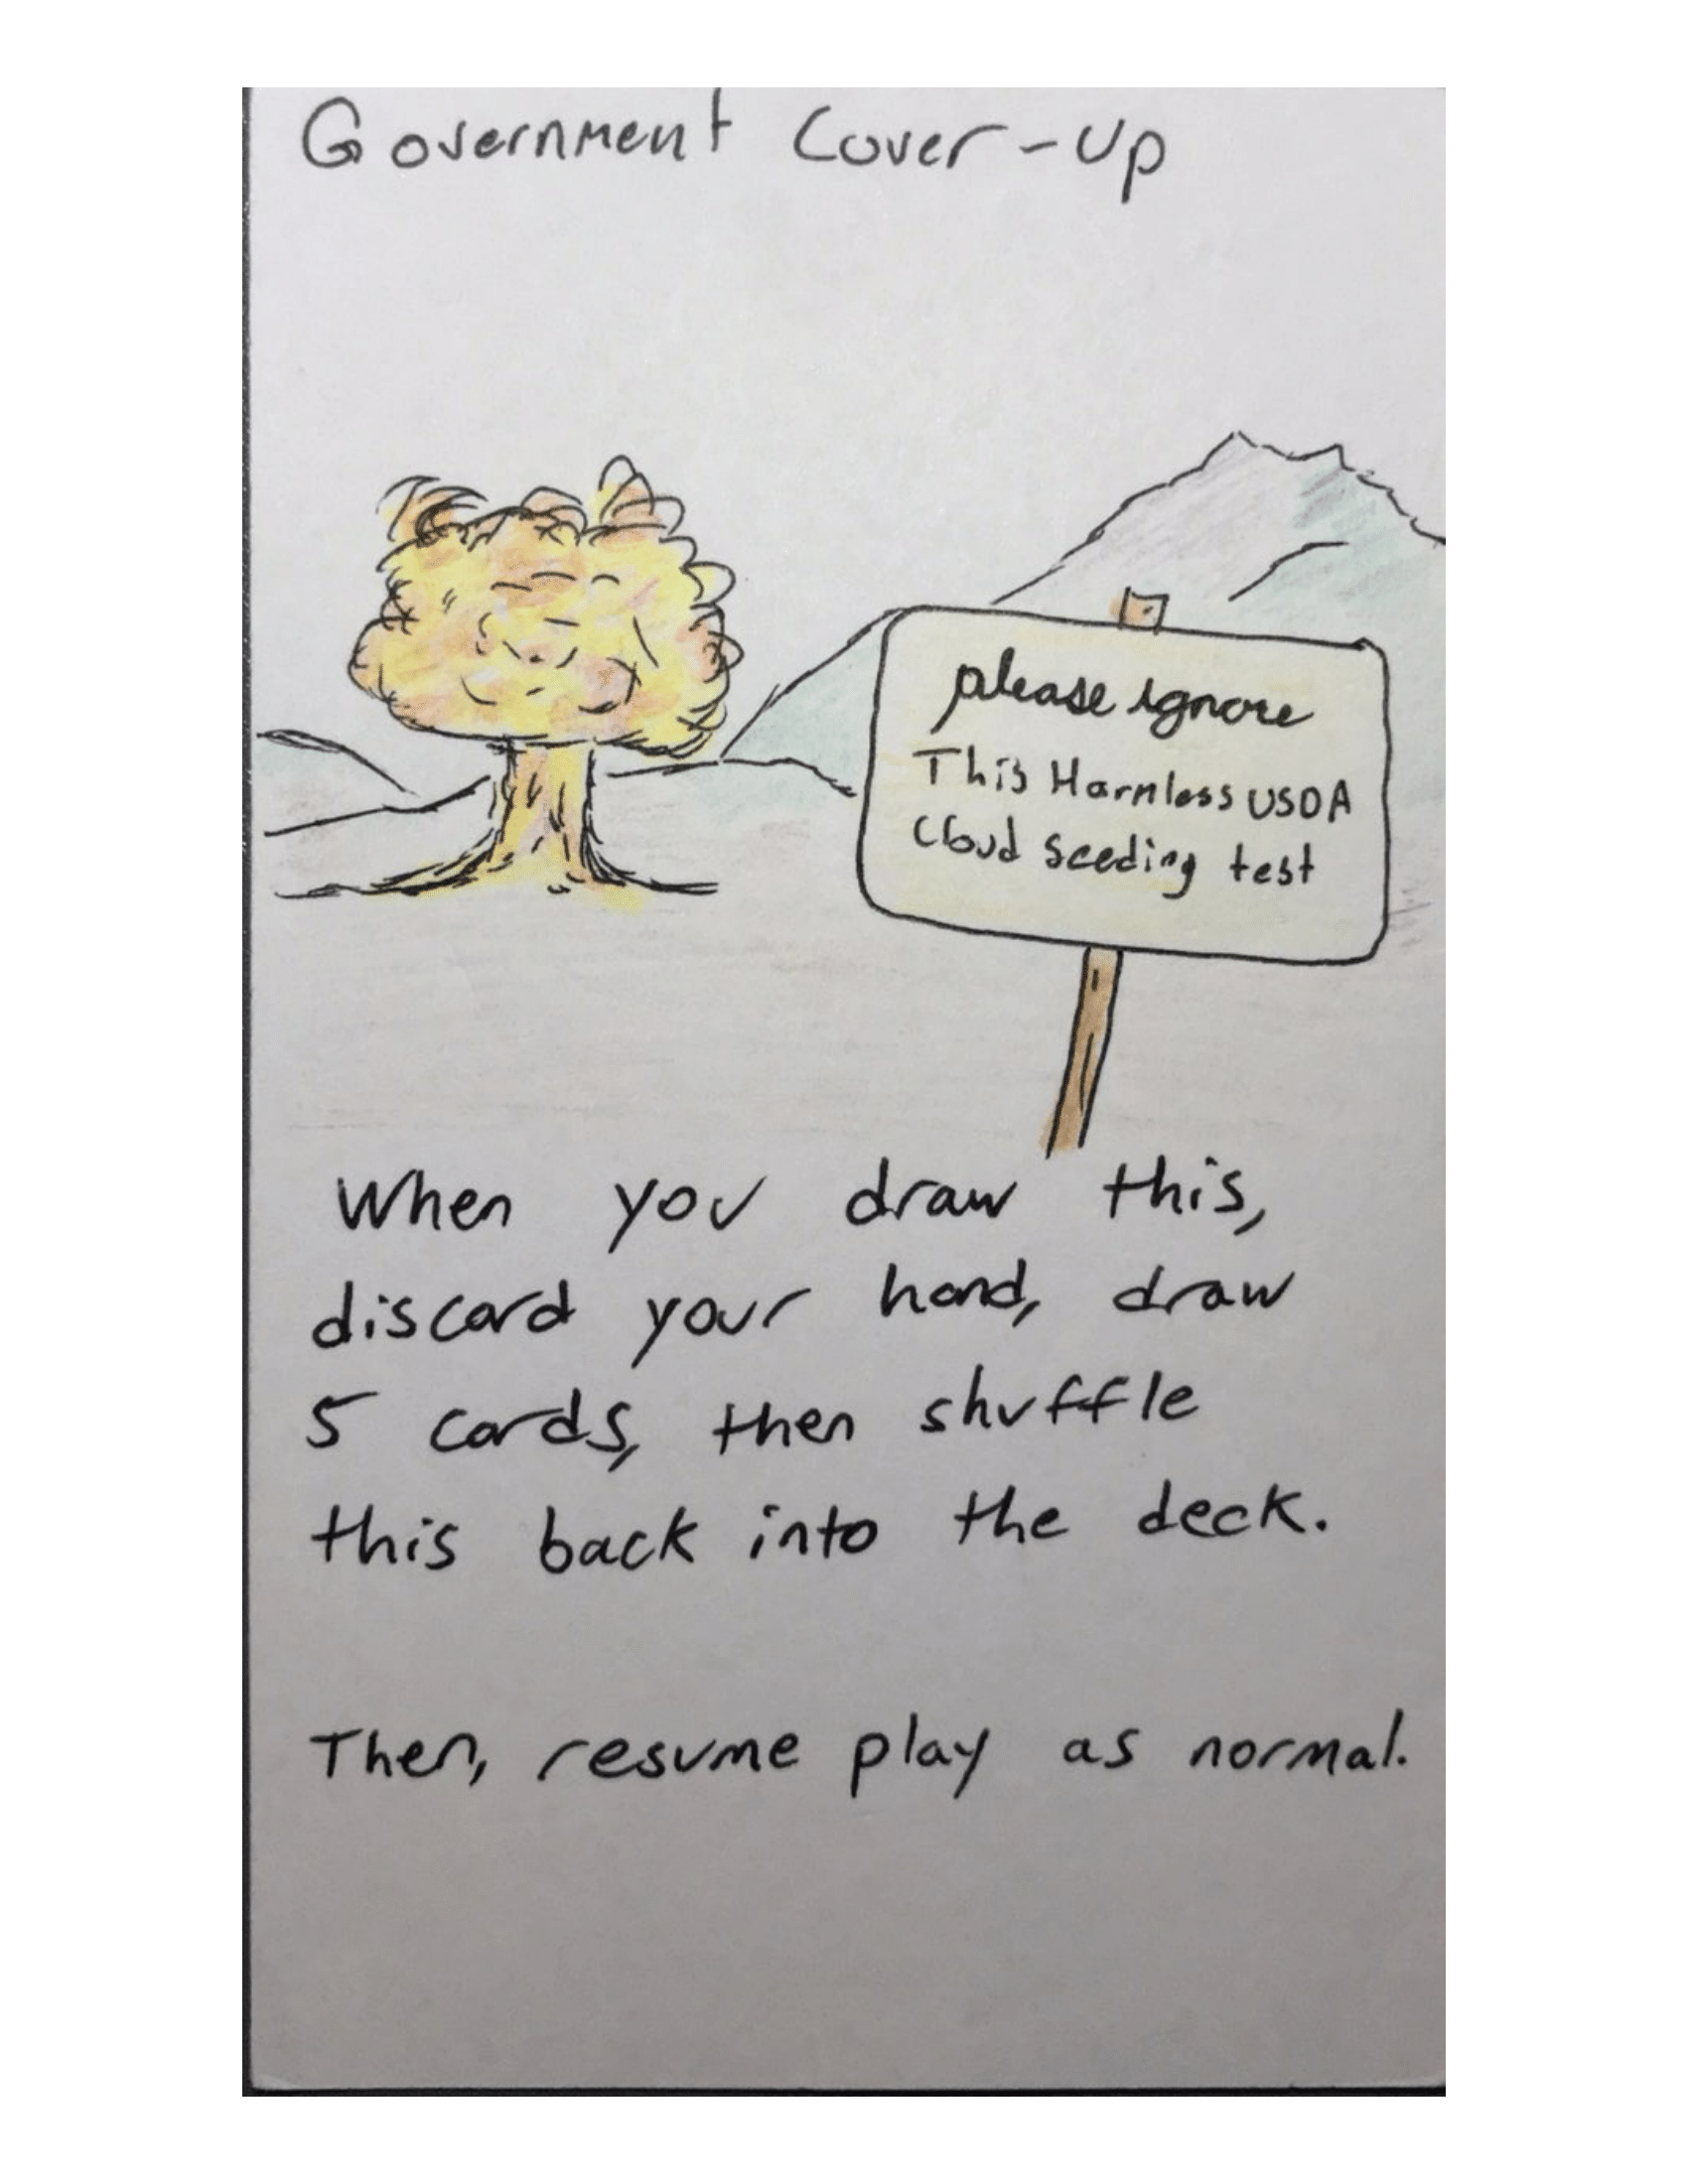 Government Cover-Up
please ignore
This Harmless USDA
Cloud seeding test
When you draw this,
discard your hand, draw
5 cards, then shuffle
this back into the deck.
Then, resume play as normal.